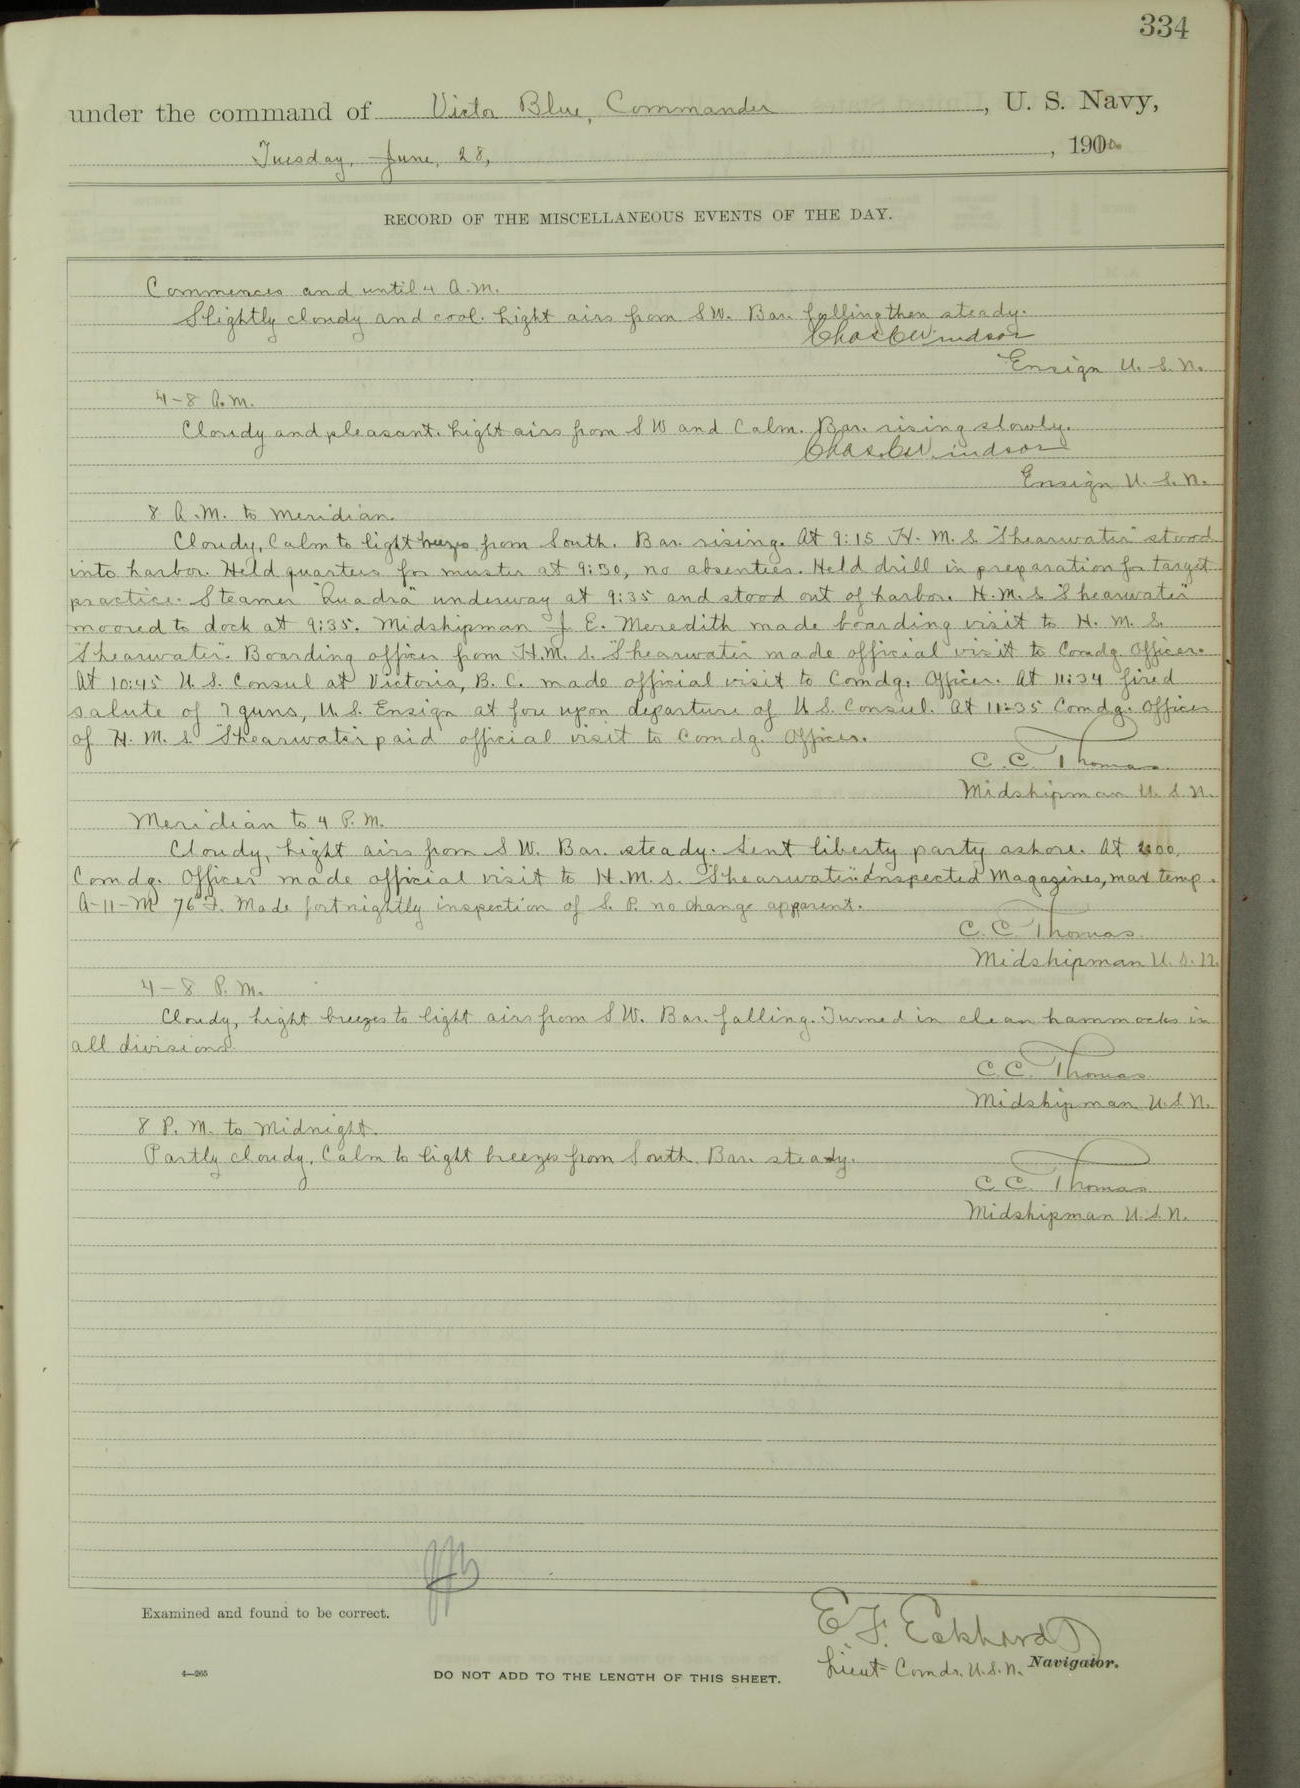 334
under the command of Victor Blue, Commander, U. S. Navy,
Tuesday, June, 28, 1910
RECORD OF THE MISCELLANEOUS EVENTS OF THE DAY.
Commences and until 4 A.M.
Slightly cloudy and cool. Light airs from SW. Bar. falling then steady.
Chas. C. Windsor
Ensign U. S. N.
4-8 A.M.
Cloudy and pleasant. Light airs from SW and Calm. Bar. rising slowly.
Chas. C. Windsor
Ensign U. S. N.
8 A.M. to Meridian.
Cloudy, Calm to light breezes from South. Bar. rising. At 9:15 H. M. S. "Shearwater" stood
into harbor. Held quarters for muster at 9:30, no absentees. Held drill in preparation for target
practice. Steamer "Quadra" underway at 9:35 and stood out of harbor. H.M.S. "Shearwater"
moored to dock at 9:35. Midshipman J. E. Meredith made boarding visit to H. M. S.
"Shearwater". Boarding officer from H.M.S. "Shearwater" made official visit to Comdg. Officer.
At 10:45 U. S. Consul at Victoria, B. C. made official visit to Comdg. Officer. At 11:34 fired
salute of 7 guns, U. S. Ensign at fore upon departure of U. S. Consul. At 11:35 Comdg. Officer
of H. M. S. "Shearwater" paid official visit to Comdg. Officer.
C. C. Thomas
Midshipman U. S. N.
Meridian to 4 P. M.
Cloudy, Light airs from SW. Bar. steady. Sent liberty party ashore. At 2:00,
Comdg. Officer made official visit to H.M.S. "Shearwater". Inspected Magazines, max temp.
A-11-M 76°F. Made fortnightly inspection of S. P. no change apparent.
C. C. Thomas
Midshipman U. S. N.
4-8 P. M.
Cloudy, Light breezes to light airs from SW. Bar. falling. Turned in clean hammocks in
all divisions.
C. C. Thomas
Midshipman U. S. N.
8 P. M. to Midnight.
Partly cloudy, Calm to light breezes from South. Bar. steady.
C. C. Thomas
Midshipman U. S. N.
Examined and found to be correct.
E F. Eckhardt
Lieut Comdr. U.S.N. Navigator.
4—265
DO NOT ADD TO THE LENGTH OF THIS SHEET.